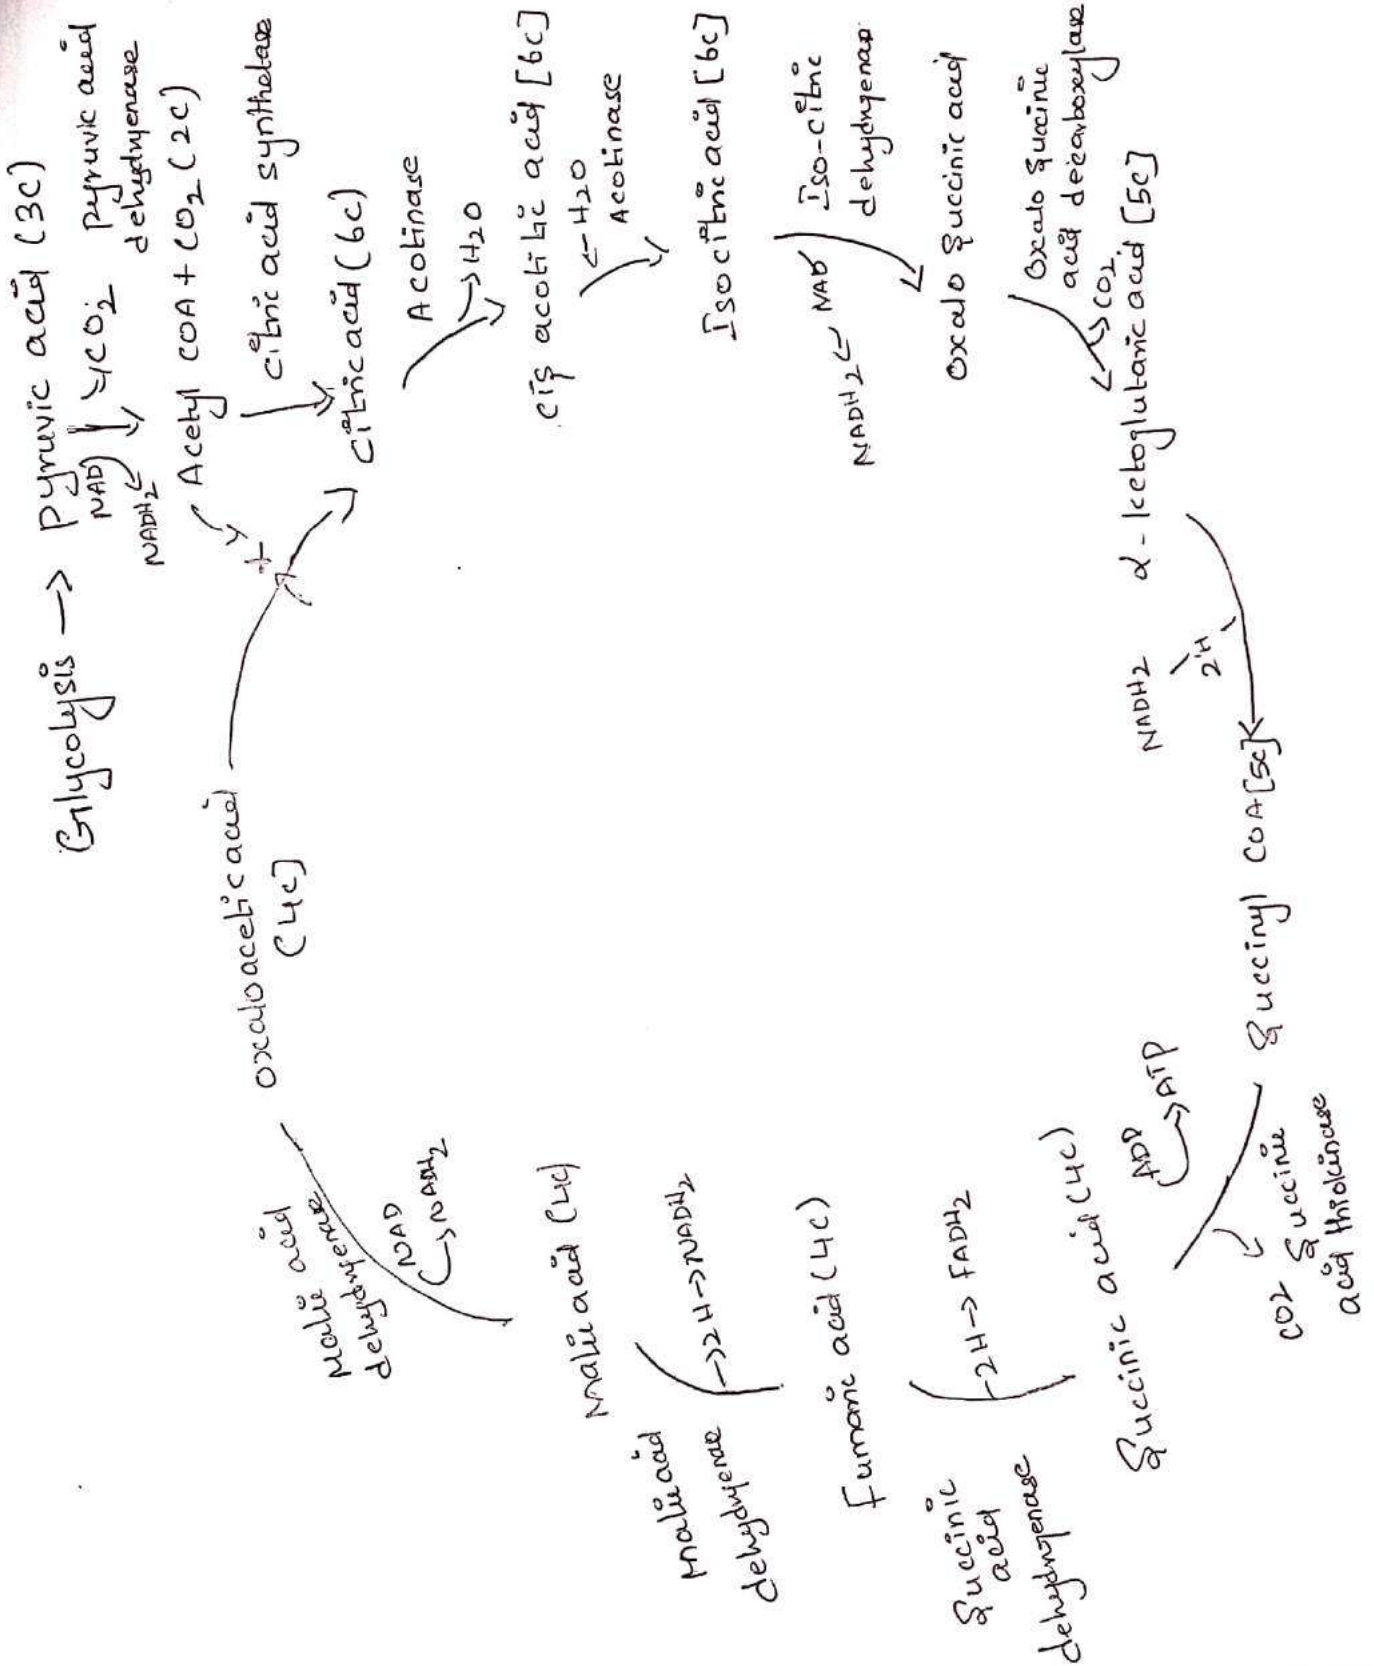 Glycolysis → Pyruvic acid (3C)
NAD
CO2
Pyruvic acid
dehydyenase
NADH2
Acetyl COA + CO2 (2C)
+
Citric acid synthetase
Citric acid (6C)
Acotinase
→ H2O
cis acotitic acid [6C]
← H2O
Acotinase
Isocitric acid [6C]
NADH2 ← NAD
Iso-citric
dehydyenase
Oxalo Succinic acid
Oxalo Succinic
acid decarboxylase
→ CO2
α - ketoglutaric acid [5C]
NADH2
2H
Succinyl COA [5C]
CO2
Succinic
acid thiokinase
ADP
→ ATP
Succinic acid (4C)
Succinic
acid
dehydyenase
2H → FADH2
Fumaric acid (4C)
Malic acid
dehydyenase
→ 2H → NADH2
Malic acid (4C)
Malic acid
dehydyenase
NAD
→ NADH2
oxaloacetic acid
(4C]